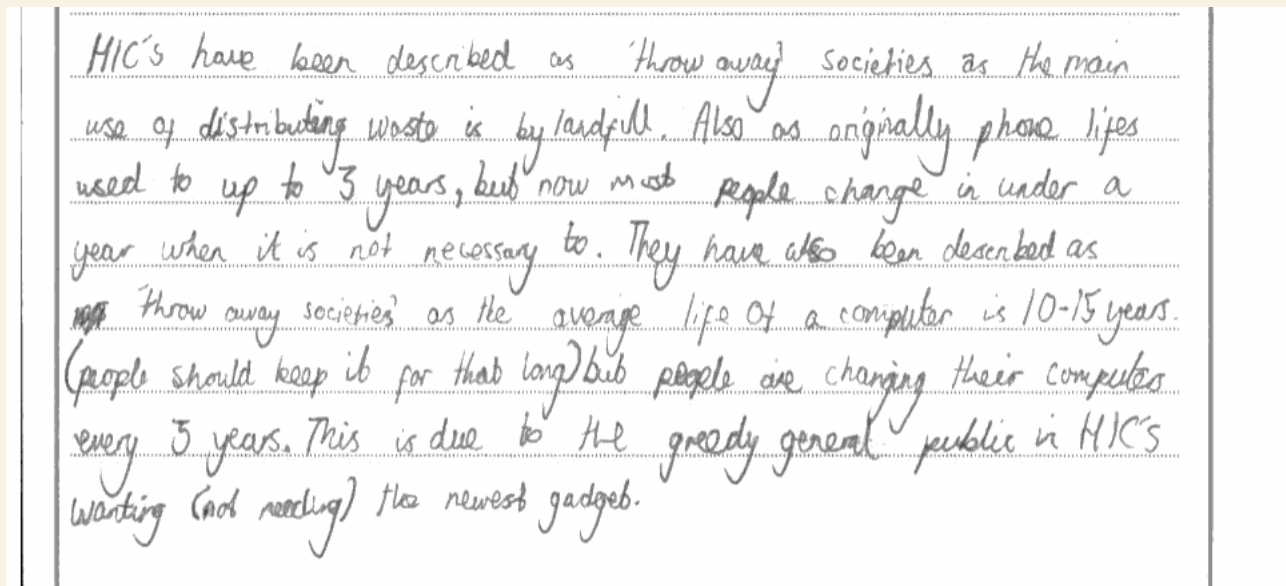 HIC's have been described as 'throw away' societies as the main
use of distributing waste is by landfill. Also as originally phone lifes
used to up to 3 years, but now most people change in under a
year when it is not necessary to. They have also been described as
'throw away societies' as the average life of a computer is 10-15 years.
(people should keep it for that long) but people are changing their computers
every 3 years. This is due to the greedy general public in HIC's
wanting (not needing) the newest gadget.